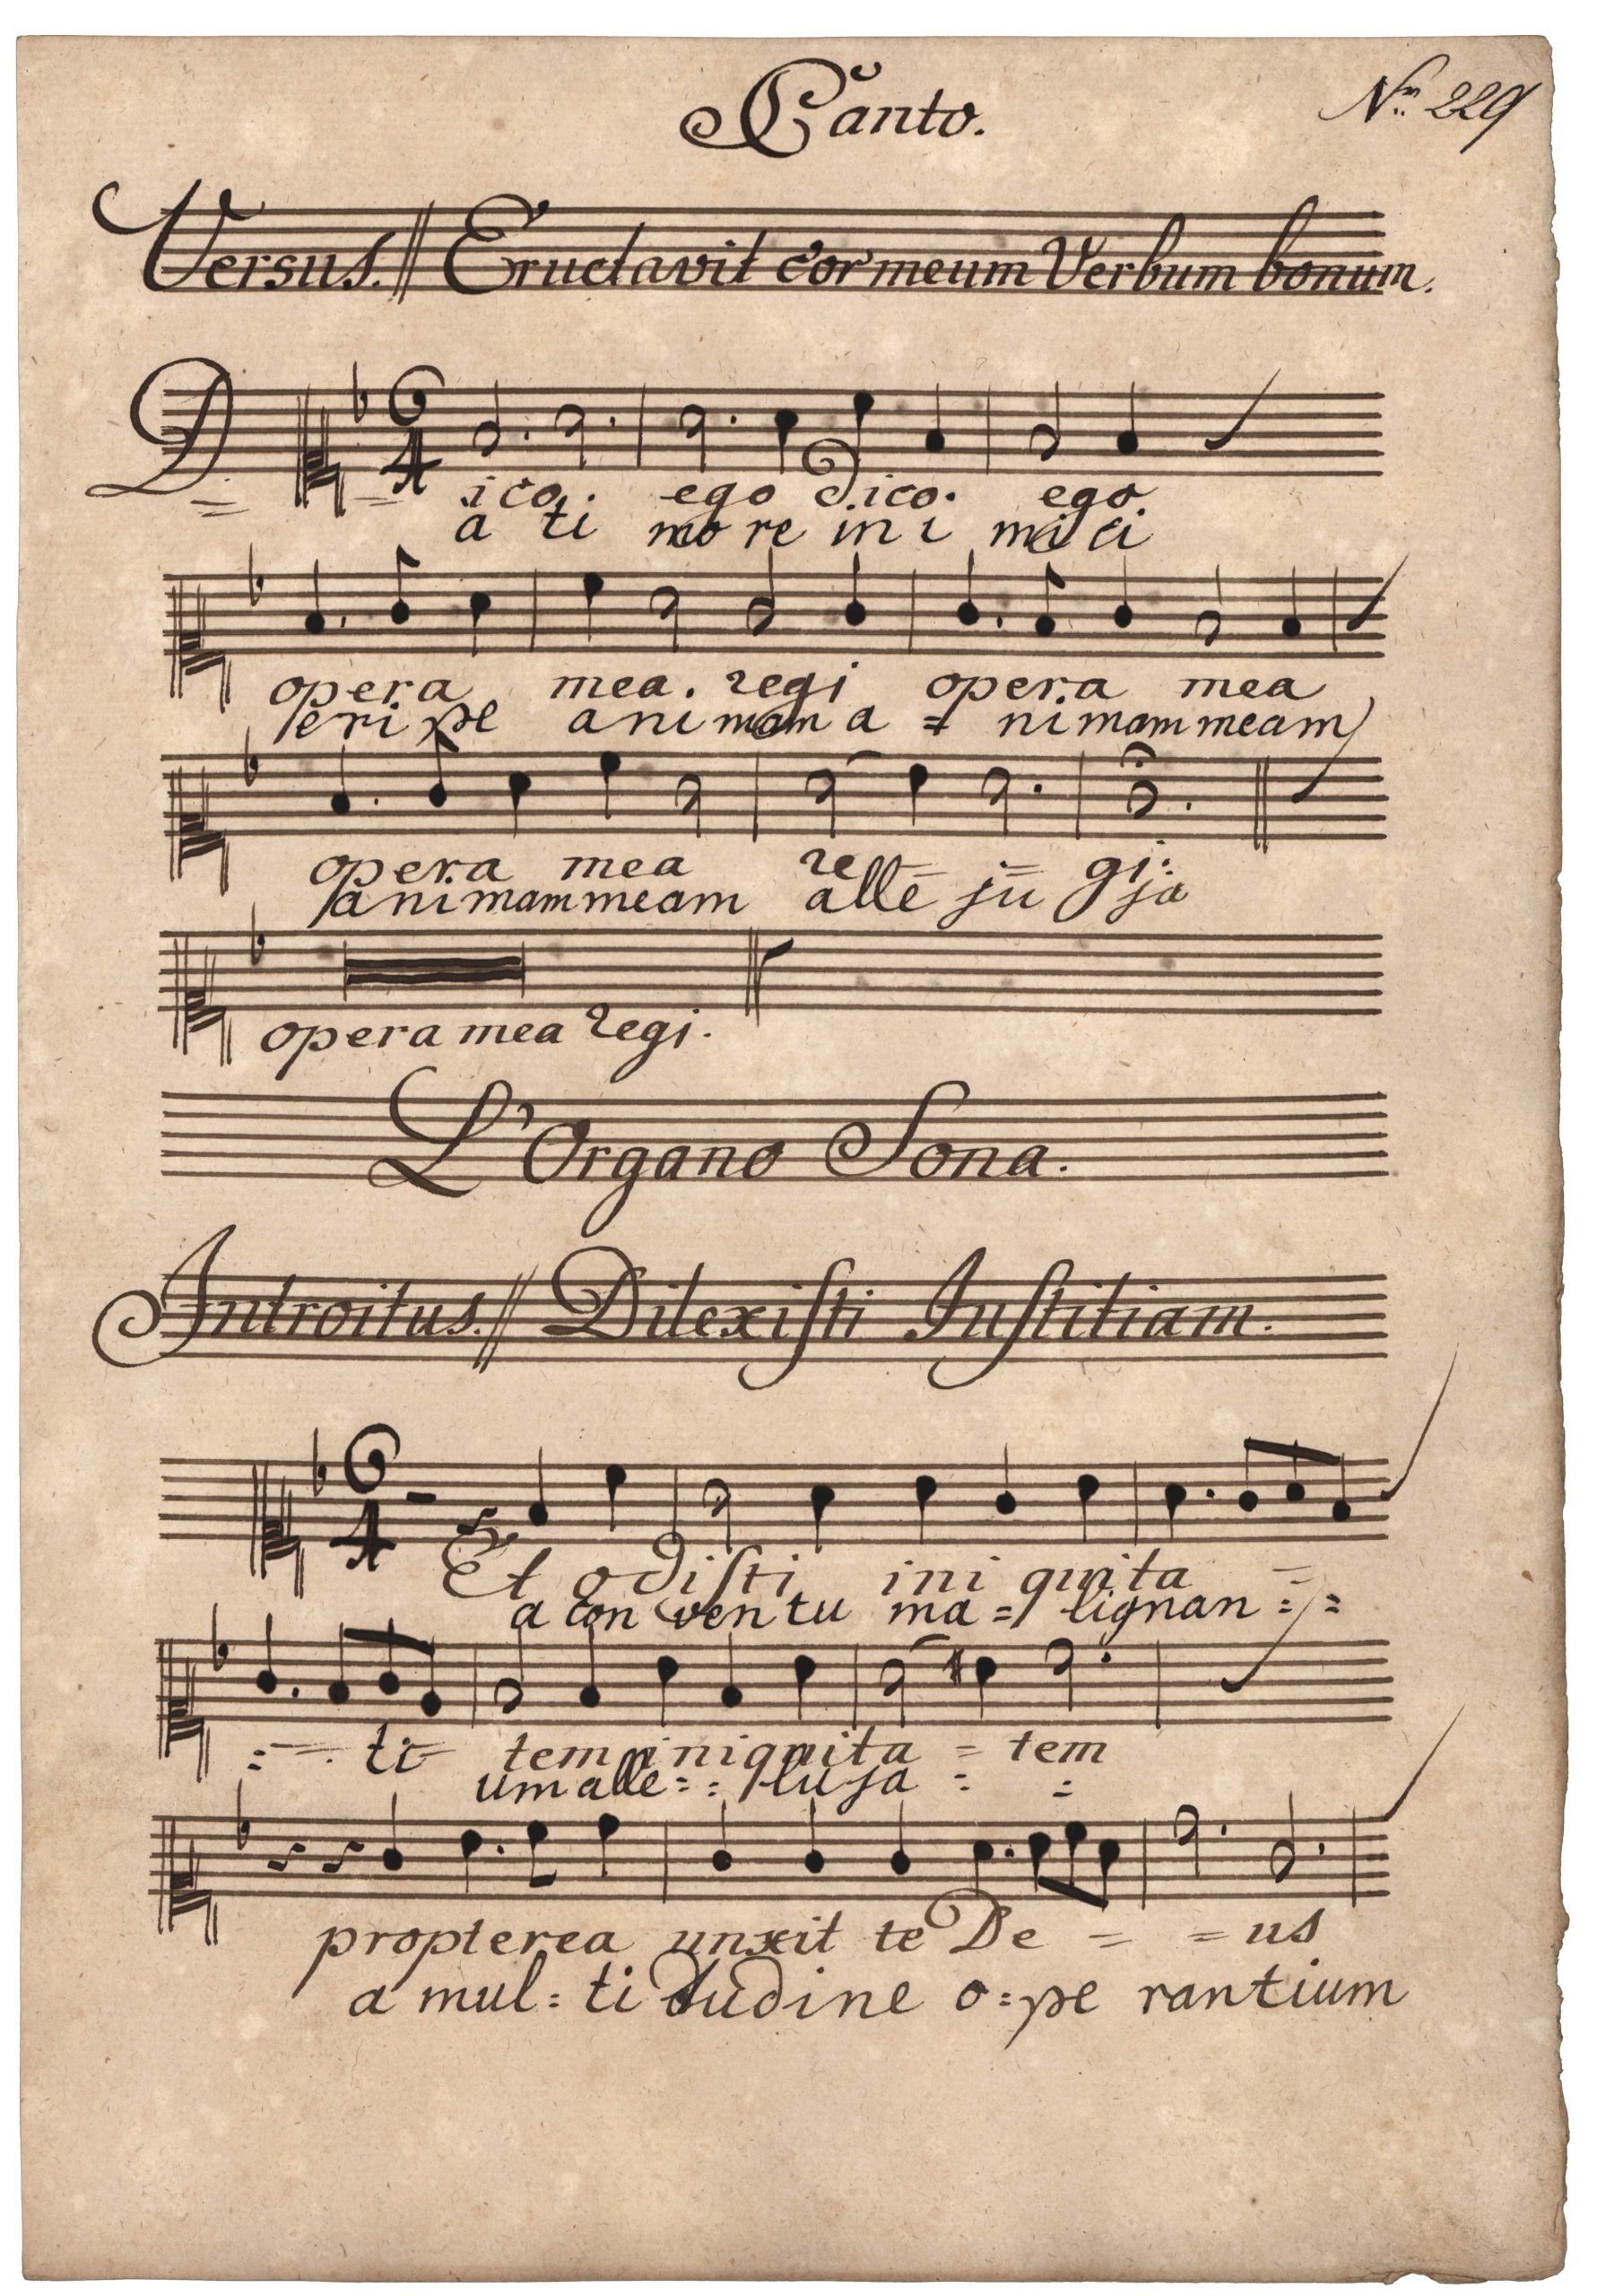 Canto.
Nro 229
Versus. // Eructavit cor meum Verbum bonum.
6
4
D = = ico. ego dico. ego
a ti more in i mici
opera mea. regi opera mea
eripe animam a = nimam meam
opera mea re = = gi.
animam meam alle ju ja
opera mea regi.
L'Organo Sona.
Introitus. // Dilexisti Iustitiam.
6
4
Et odisti iniquita =
a con ventu ma = lignan = =
= - ti tem iniquita = tem
um alle = = luja = =
propterea unxit te De = = us
a mul = titudine o = pe rantium